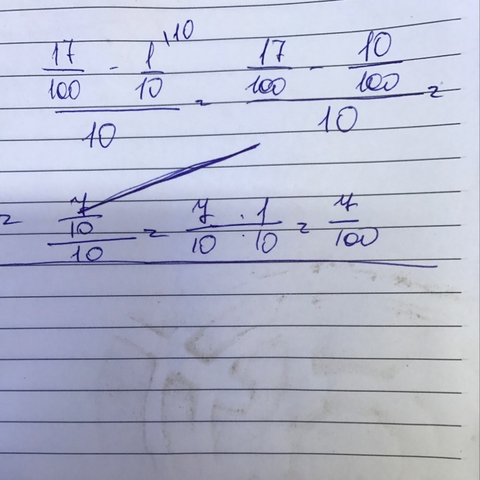 17/100 - 1\10/10 / 10 = 17/100 - 10/100 / 10 =
= 7/10 / 10 = 7/10 · 1/10 = 7/100